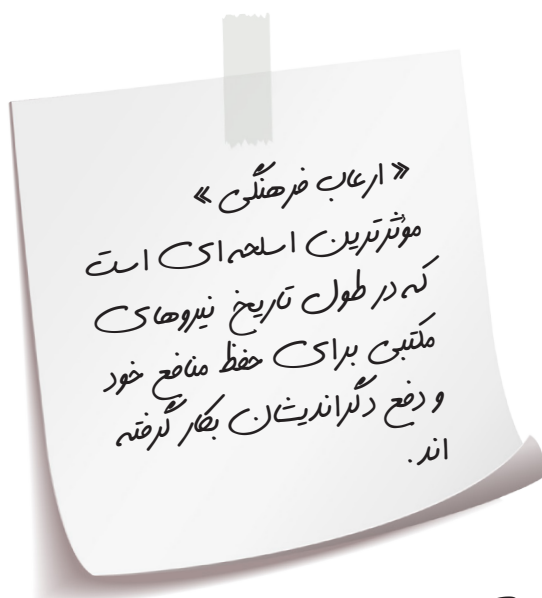 « ارعاب فرهنگی »
مؤثرترین اسلحه ای است
که در طول تاریخ نیروهای
مکتبی برای حفظ منافع خود
و دفع دگراندیشان بکار گرفته
اند.